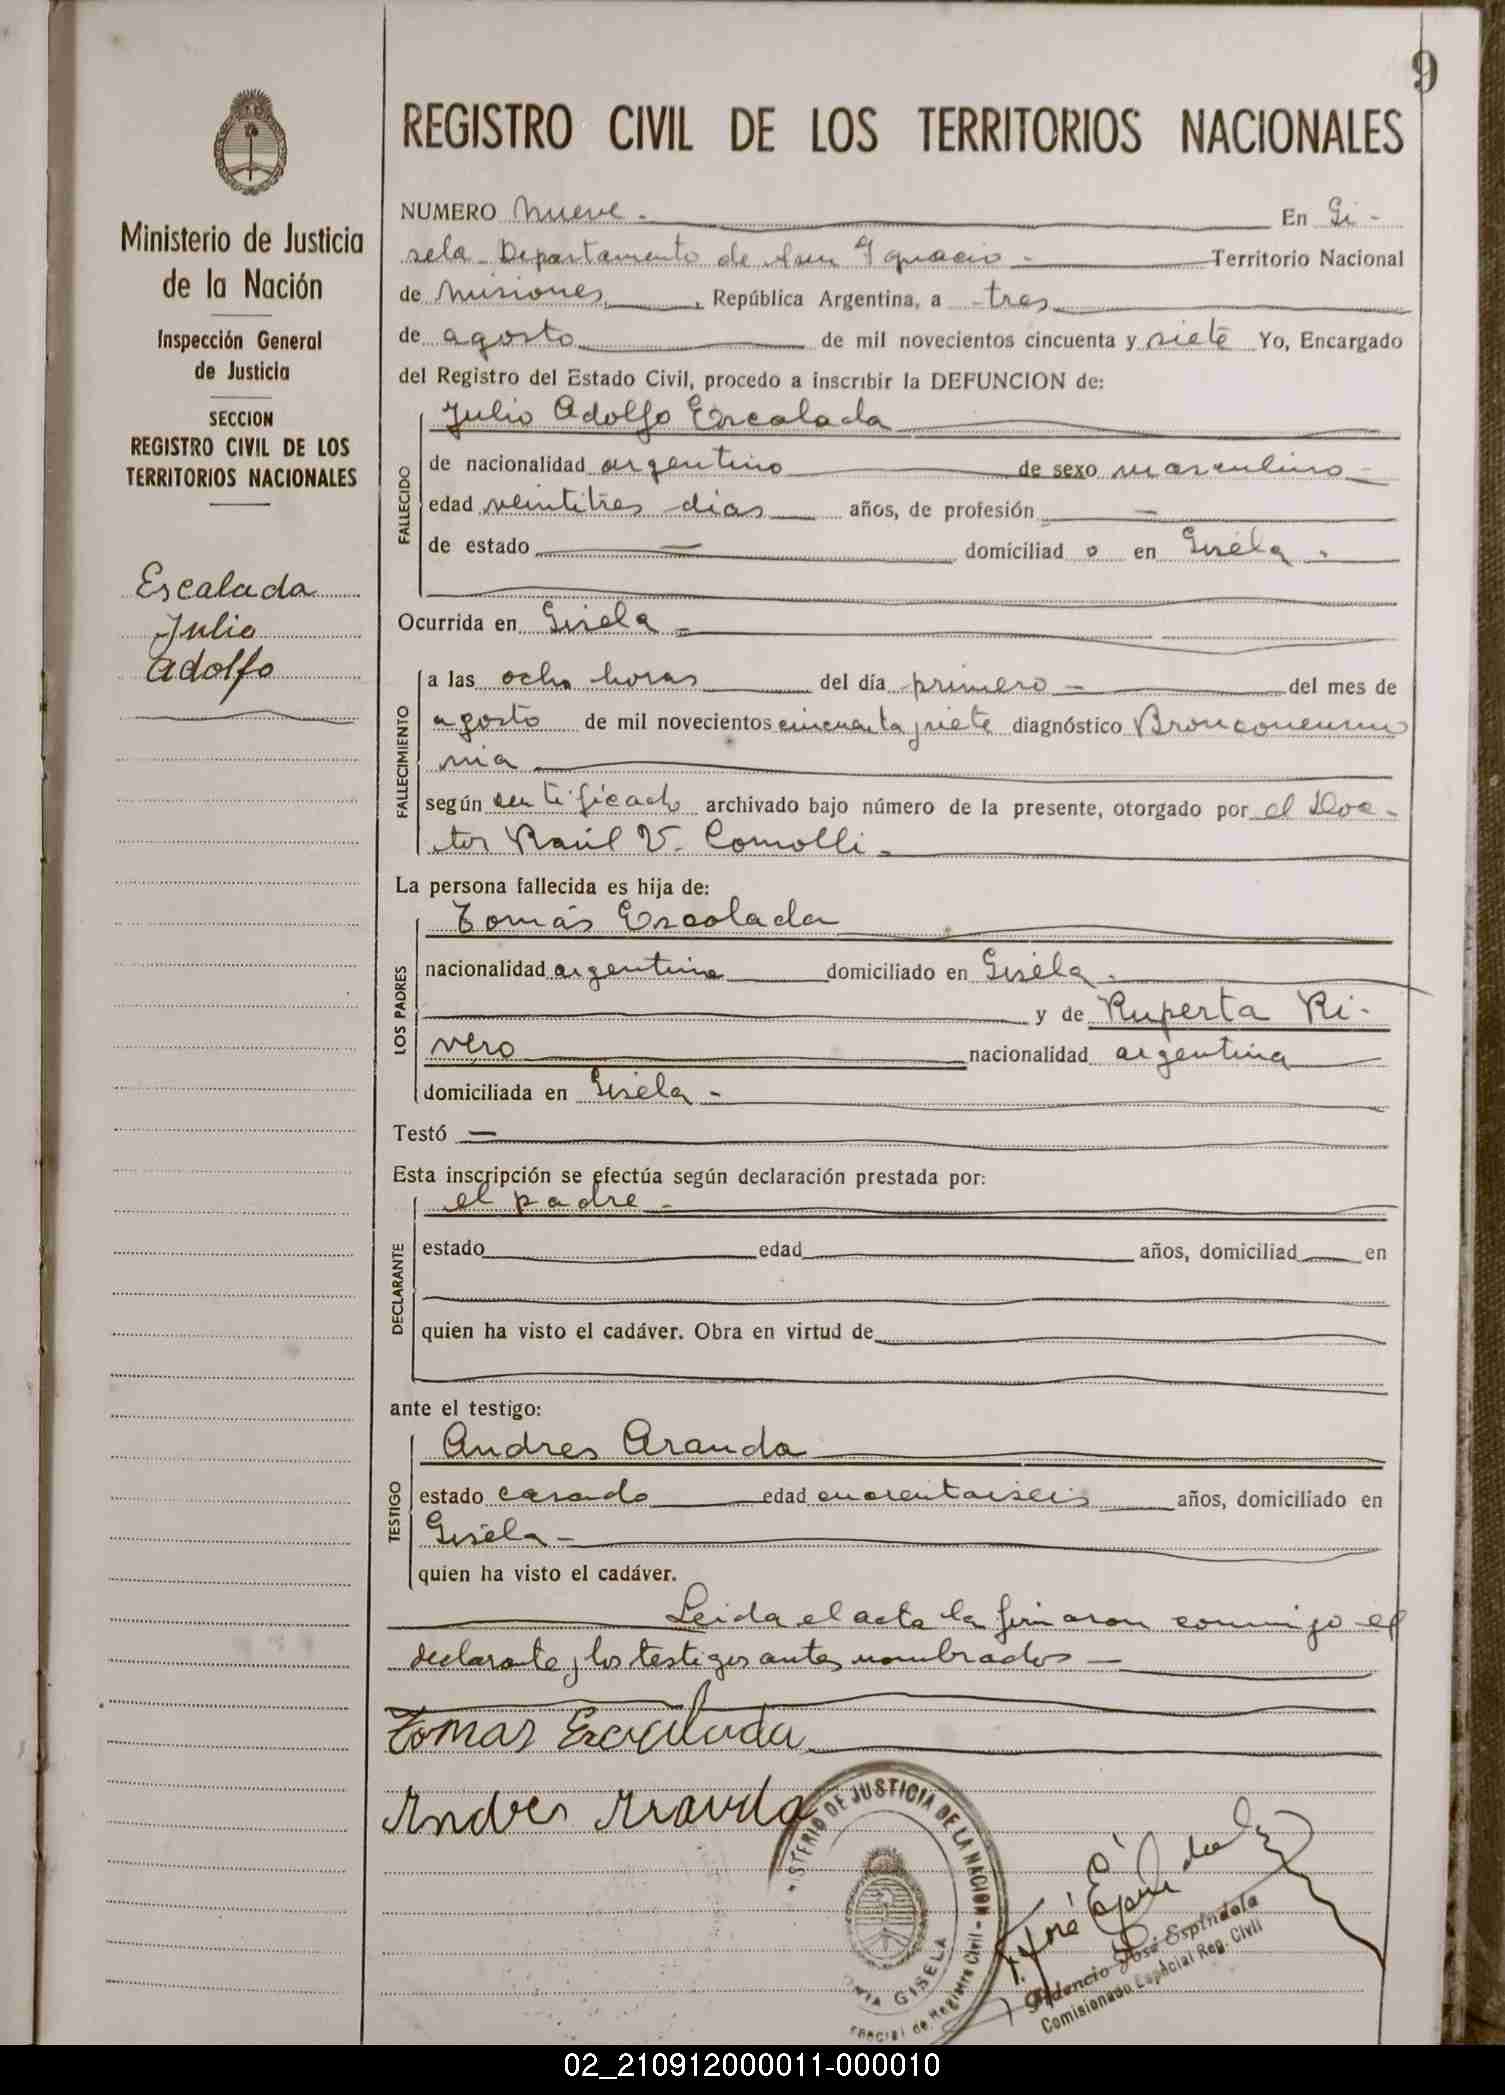 9
REGISTRO CIVIL DE LOS TERRITORIOS NACIONALES
Ministerio de Justicia
de la Nación
Inspección General
de Justicia
SECCION
REGISTRO CIVIL DE LOS
TERRITORIOS NACIONALES
Escalada
Julio
Adolfo
NUMERO Nueve. En Gi-
sela Departamento de San Ignacio - Territorio Nacional
de Misiones, República Argentina, a tres
de agosto de mil novecientos cincuenta y siete Yo, Encargado
del Registro del Estado Civil, procedo a inscribir la DEFUNCION de:
Julio Adolfo Escalada
FALLECIDO
de nacionalidad argentino de sexo masculino -
edad veintitres dias años, de profesión -
de estado - domiciliad o en Gisela.
Ocurrida en Gisela -
FALLECIMIENTO
a las ocho horas del día primero - del mes de
agosto de mil novecientos cincuenta y siete diagnóstico Bronconeumo
nia
según certificado archivado bajo número de la presente, otorgado por el Doc-
tor Raúl V. Comolli -
La persona fallecida es hija de:
LOS PADRES
Tomás Escalada
nacionalidad argentina domiciliado en Gisela.
y de Ruperta Ri-
vero nacionalidad argentina
domiciliada en Gisela -
Testó -
Esta inscripción se efectúa según declaración prestada por:
DECLARANTE
el padre -
estado edad años, domiciliad en
quien ha visto el cadáver. Obra en virtud de
ante el testigo:
TESTIGO
Andres Aranda
estado casado edad cuarentaiseis años, domiciliado en
Gisela -
quien ha visto el cadáver.
Leida el acta la firmaron conmigo el
declarante y los testigos antes nombrados -
Tomas Escalada
Andres Aranda
MINISTERIO DE JUSTICIA DE LA NACION
GISELA
Especial de Registro Civil
José Espindola
Fidencio José Espindola
Comisionado Especial Reg. Civil
02_210912000011-000010